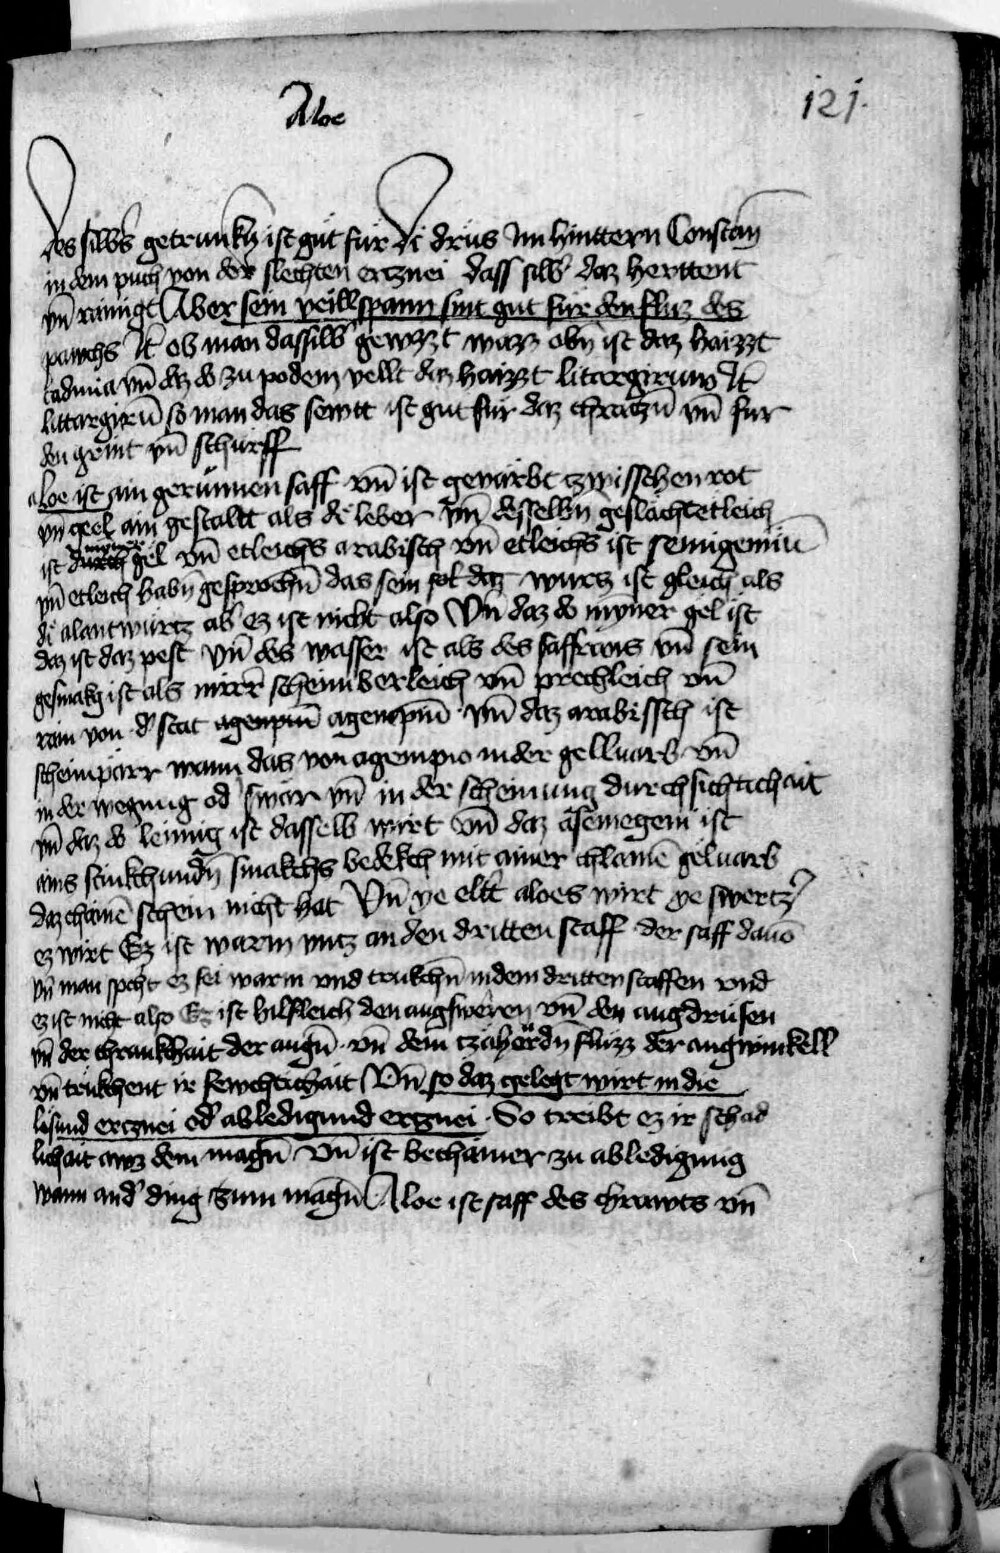 Aloe
121.
des silbs getrunkh ist gut für di drüs Im hinttern Constan̄
in dem puch von der slechten ercznei dass silb daz herttent
vn̄ rainigt Aber sein veillspann sint gut für den fluz des
pawchs It ob man dassilb gewzzt wazz obn̄ ist daz haizzt
cadmia vn̄ daz do zu podem vellt daz haizzt litargirum It
littargirū so man das sewtt ist gut für daz chraczn̄ vn̄ für
den grint vn̄ schurff
aloe ist ain gerunnen saff vn̄ ist gevärbt zwisschen rot
vn̄ geel ain gestalt als di leber vn̄ desselbn̄ geslächt etleich
ist durch gel vn̄ etleichs arabisch vn̄ etleichs ist
vn̄ etleich habn̄ gesprochn̄ das sein sol daz wurcz ist gleich als
di alantwürtz ab ez ist nicht also Vn̄ daz do mynner gel ist
daz ist daz pest vn̄ des wasser ist als des saffrans vn̄ sein
gesmakh ist als mirr scheinberleich vn̄ prechleich vn̄
rain von d stat agenpiū agenpiū vn̄ daz arabissch ist
scheinparr wann das von agempio in der gellvarb vn̄
in der wegung od swär vn̄ in der scheinung durchsichtichait
vn̄ daz do leimig ist dasselb wirt vn̄ daz asemegeni ist
ains stinkchundn̄ smakchs bedekch mit ainer chlainē gelvarb
daz chainē schein nicht hat Vn̄ ye elt aloes wirt ye swertz
ez wirt Ez ist warm vntz an den dritten staff der saff dauō
vn̄ man spcht ez sei warm vnd trukchn̄ in dem dritten staffen vnd
ez ist nicht also Ez ist hilfleich den augsweren vn̄ den augdrüsen
vn̄ der chrankhait der augn̄ vn̄ dem fluzz der augwinkell
vn̄ trükchent ir fewchtichait Vn̄ so daz gelegt wirt in die
lisund ercznei od abledigund ercznei So treibt ez ir schad
lichait awz dem magn̄ vn̄ ist bechamer zu abledigung
wann and ding zum magn̄ Aloe ist saff des chrawts vn̄